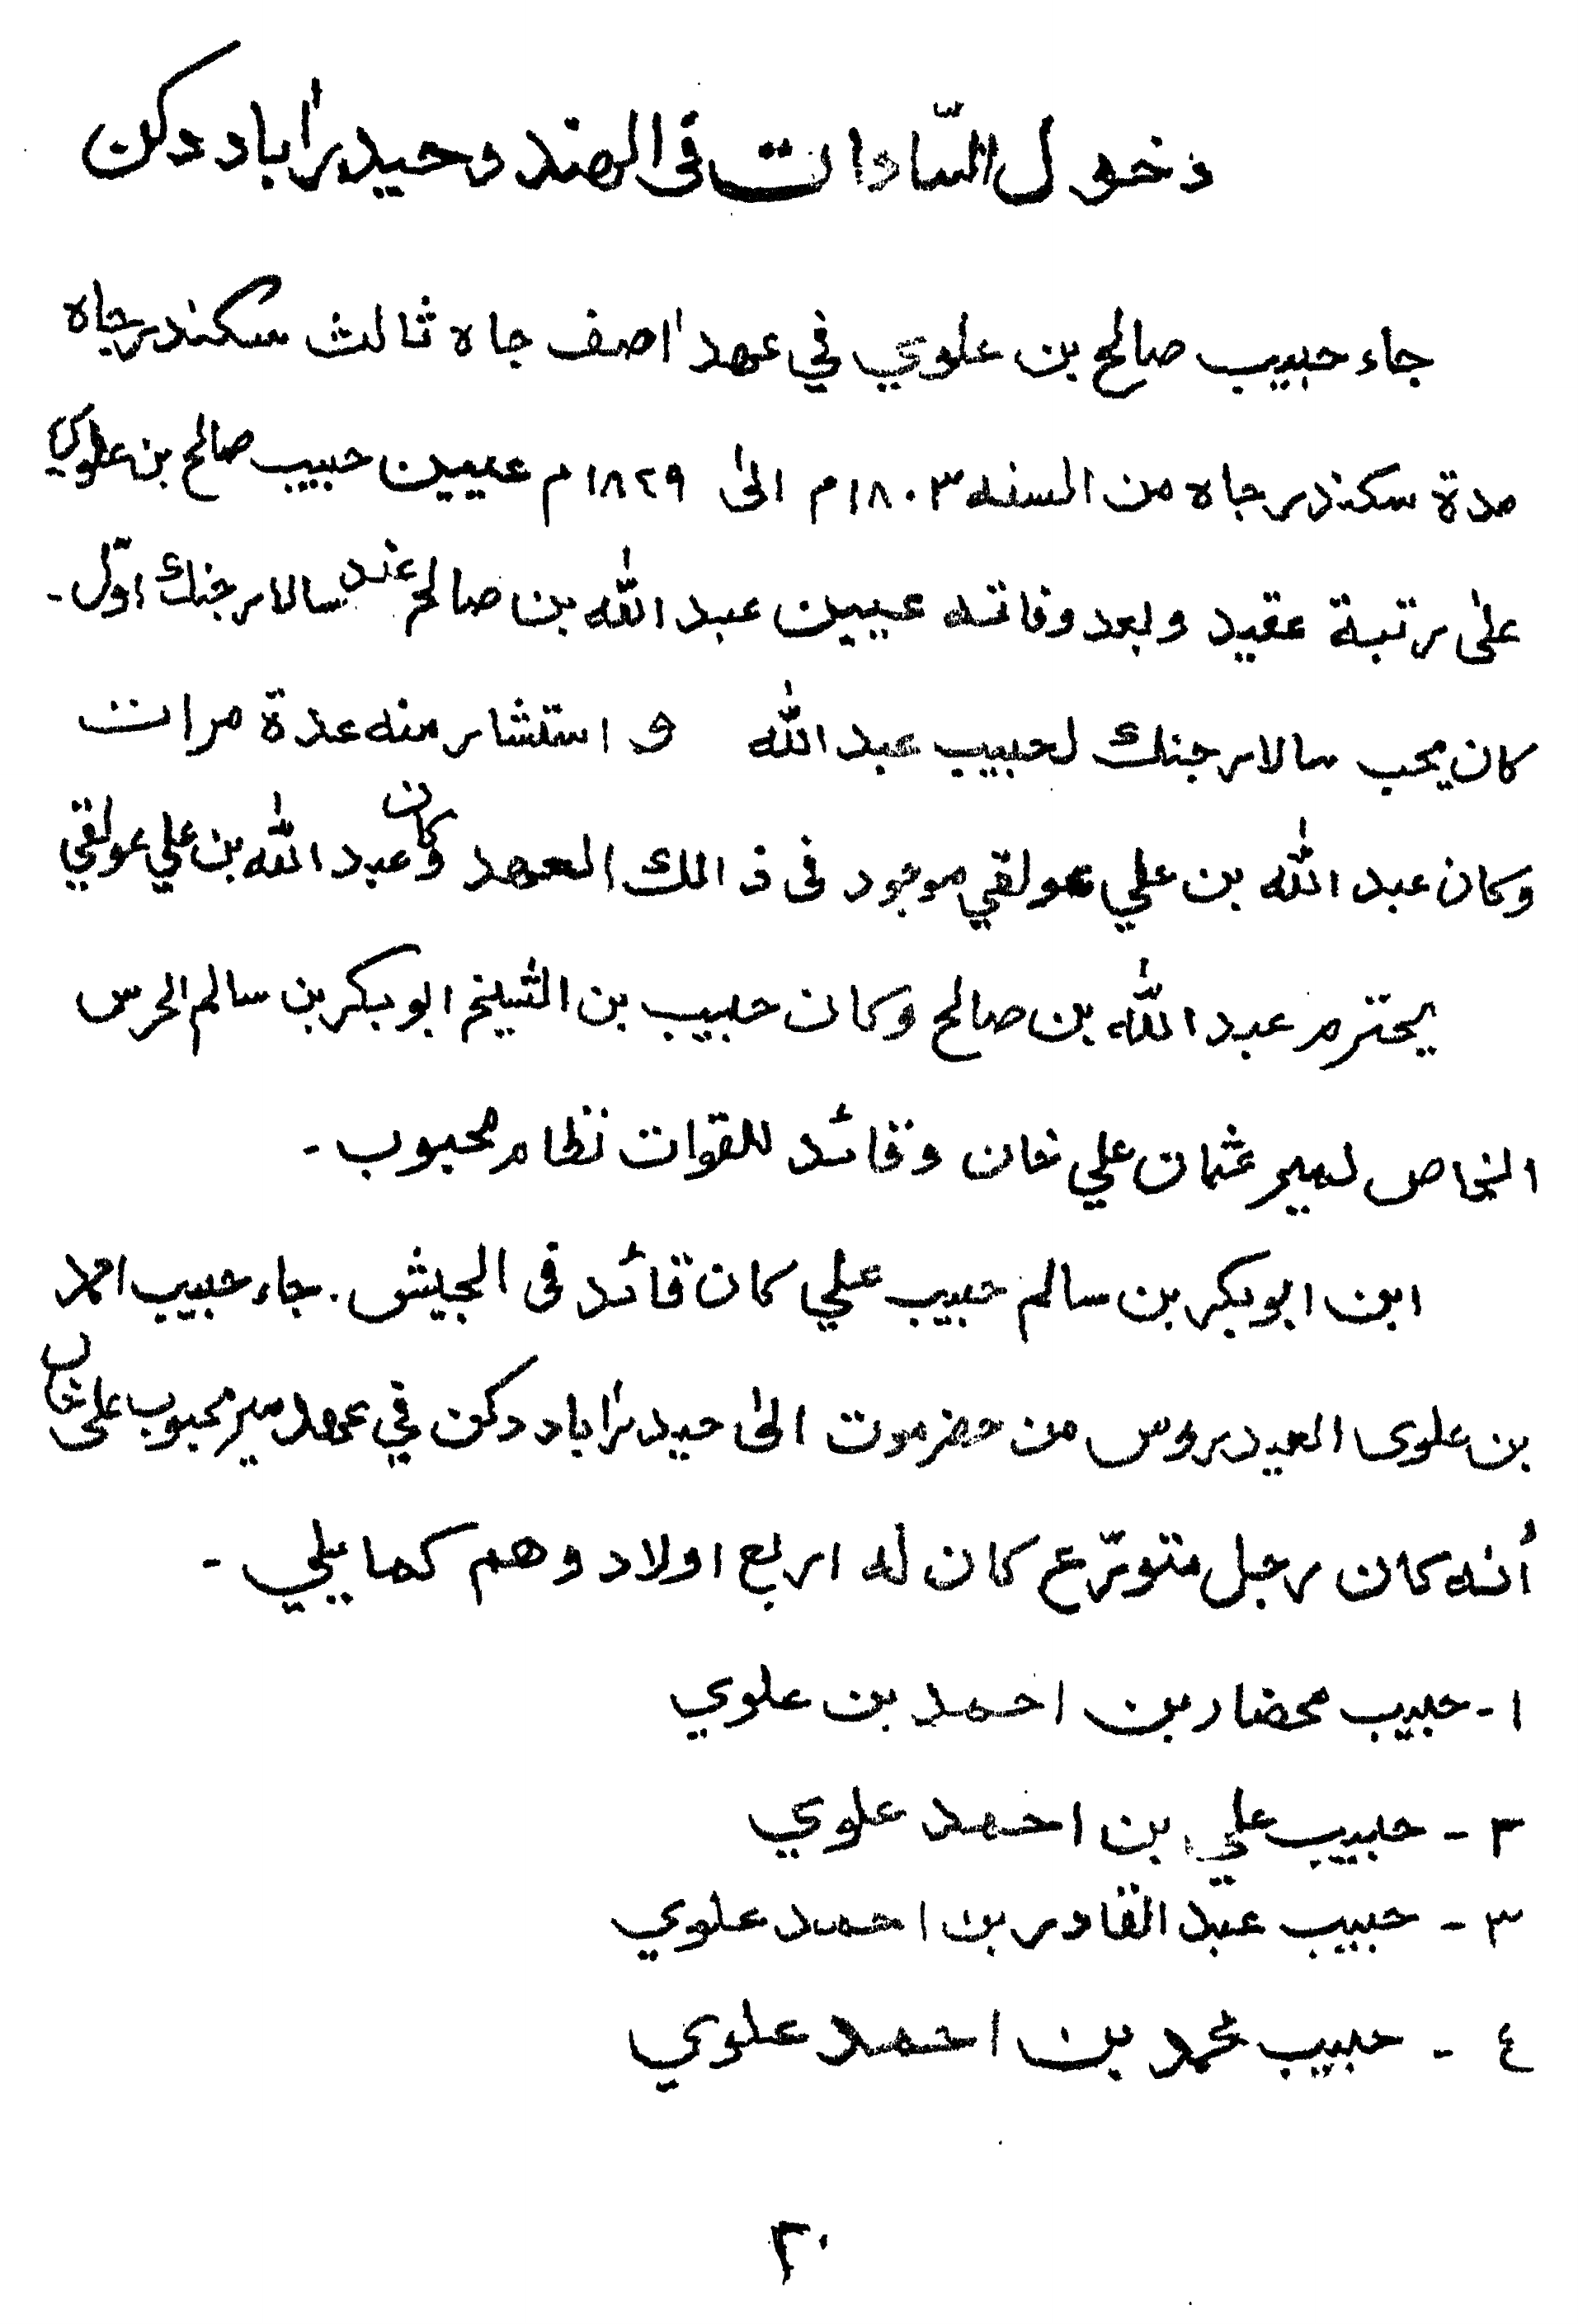 دخول السّادات فى الهند و حيدرآباد دكن
جاء حبيب صالح بن علوي في عهد آصف جاه ثالث سكندر جاه
مدة سكندر جاه من السنه ١٨٠٣م الىٰ ١٨٢٩م عيين حبيب صالح بن علوي
علىٰ رتبة عقيد ولبعد وفاته عيين عبد اللّٰه بن صالح عند سالار جنك اوّل -
كان يحب سالار جنك لحبيب عبد اللّٰه و استشار منه عدة مرات
وكان عبد اللّٰه بن علي عولقي موجود فى ذالك العهد وكان عبد اللّٰه بن علي عولقي
يحترم عبد اللّٰه بن صالح وكان حبيب بن الشيخ ابو بكر بن سالم الحرس
الخاص لمير عثمان علي خان وقائد للقوات نظام محبوب -
ابن ابو بكر بن سالم حبيب علي كان قائد فى الجيش . جاء حبيب احمد
بن علوى العيدروس من حضرموت الىٰ حيدرآباد دكن في عهد مير محبوب على خان
أنه كان رجل متورّع كان له اربع اولاد وهم كما يلي -
١- حبيب محضار بن احمد بن علوي
٣ - حبيب علي بن احمد علوي
٣ - حبيب عبد القادر بن احمد علوي
٤ - حبيب محمد بن احمد علوي
٢٠